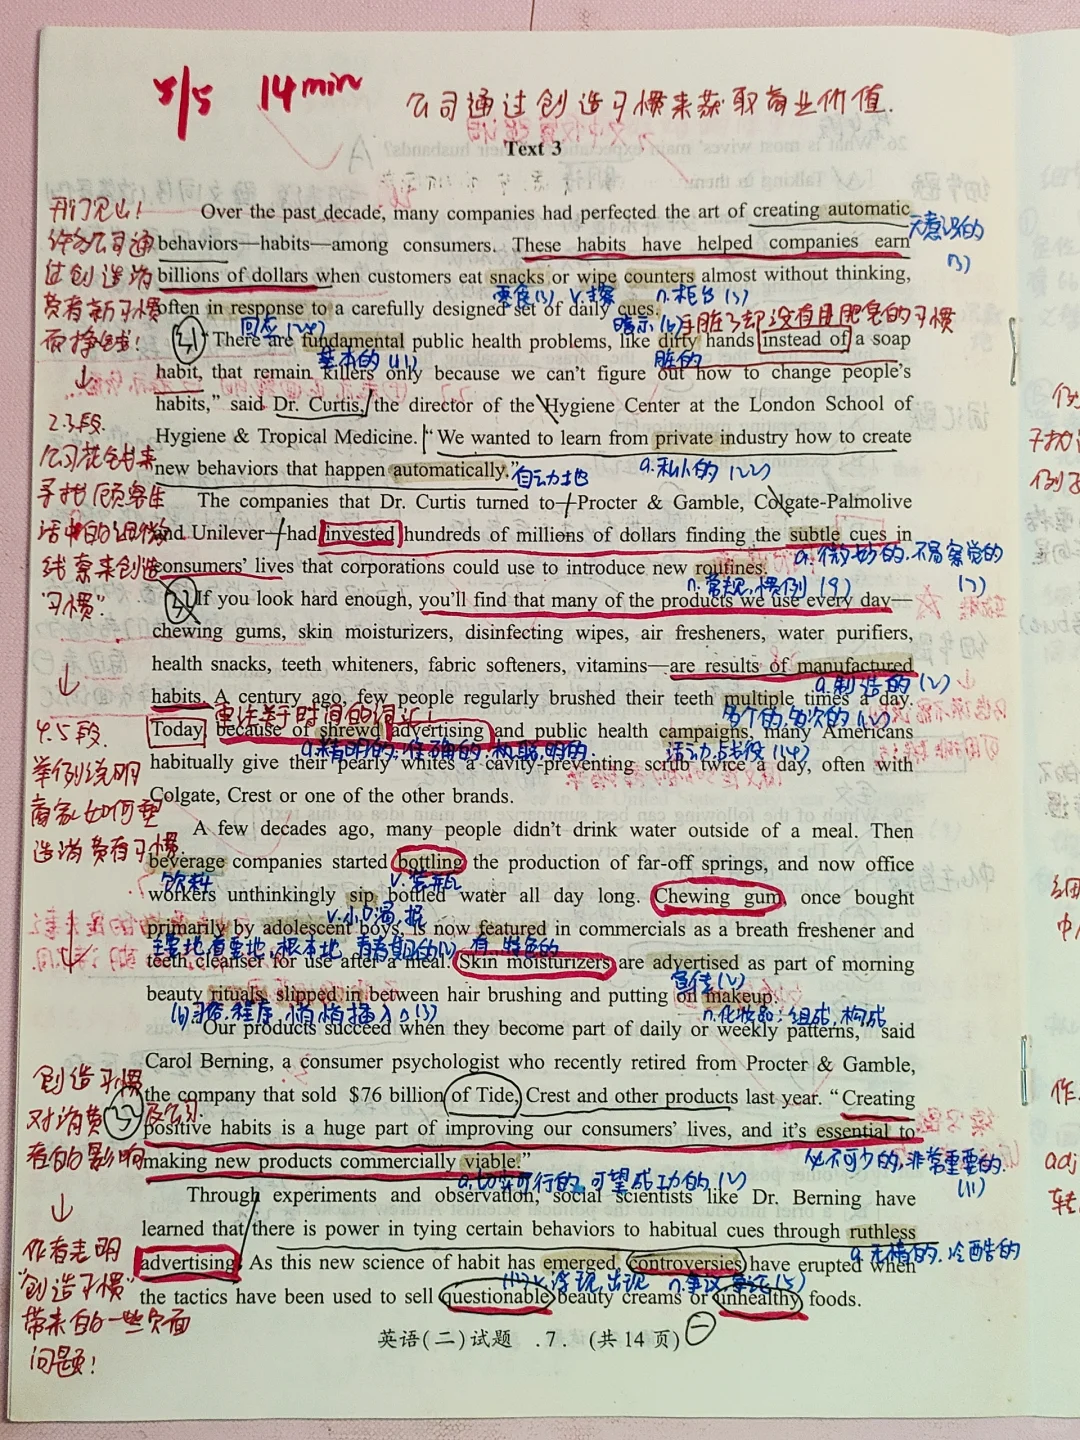 5/5 14min
公司通过创造习惯来获取商业价值.
Text 3
开门见山!
许多公司通
过创造消
费者新习惯
而挣钱!
↓
Over the past decade, many companies had perfected the art of creating automatic
无意识的
behaviors—habits—among consumers. These habits have helped companies earn
billions of dollars when customers eat snacks or wipe counters almost without thinking,
零食(3), v.擦 n.柜台(3)
often in response to a carefully designed set of daily cues.
回应(24) 暗示(6) 手脏了却没有用肥皂的习惯
“There are fundamental public health problems, like dirty hands instead of a soap
基本的(11) 脏的
habit, that remain killers only because we can’t figure out how to change people’s
habits,” said Dr. Curtis, the director of the Hygiene Center at the London School of
Hygiene & Tropical Medicine. “We wanted to learn from private industry how to create
new behaviors that happen automatically.”
自动地 a.私人的(22)
2.3段.
公司花钱来
寻找顾客生
活中的细微
线索来创造
“习惯”.
↓
The companies that Dr. Curtis turned to—Procter & Gamble, Colgate-Palmolive
and Unilever—had invested hundreds of millions of dollars finding the subtle cues in
a.微妙的.不易察觉的
consumers’ lives that corporations could use to introduce new routines.
n.常规,惯例(9)
If you look hard enough, you’ll find that many of the products we use every day—
chewing gums, skin moisturizers, disinfecting wipes, air fresheners, water purifiers,
health snacks, teeth whiteners, fabric softeners, vitamins—are results of manufactured
a.制造的(2)
habits. A century ago, few people regularly brushed their teeth multiple times a day.
多个的,多次的
Today, because of shrewd advertising and public health campaigns, many Americans
a.精明的.准确的.机敏.明的. 活动,战役(14)
habitually give their pearly whites a cavity-preventing scrub twice a day, often with
Colgate, Crest or one of the other brands.
4.5段.
举例说明
商家如何塑
造消费者习惯.
↓
A few decades ago, many people didn’t drink water outside of a meal. Then
beverage companies started bottling the production of far-off springs, and now office
饮料 v.装瓶
workers unthinkingly sip bottled water all day long. Chewing gum, once bought
v.小口喝,抿
primarily by adolescent boys, is now featured in commercials as a breath freshener and
teeth cleanser for use after a meal. Skin moisturizers are advertised as part of morning
宣传(2)
beauty rituals, slipped in between hair brushing and putting on makeup.
n.化妆品;组成,构成
“Our products succeed when they become part of daily or weekly patterns,” said
Carol Berning, a consumer psychologist who recently retired from Procter & Gamble,
the company that sold $76 billion of Tide, Crest and other products last year. “Creating
positive habits is a huge part of improving our consumers’ lives, and it’s essential to
必不可少的,非常重要的.
(11)
making new products commercially viable.”
a.切实可行的,可望成功的(2)
创造习惯
对消费
及公司.
者的影响
↓
Through experiments and observation, social scientists like Dr. Berning have
learned that there is power in tying certain behaviors to habitual cues through ruthless
a.无情的.冷酷的
advertising. As this new science of habit has emerged, controversies have erupted when
v.浮现,出现 n.争议,争论(5)
the tactics have been used to sell questionable beauty creams or unhealthy foods.
作者表明
“创造习惯”
带来的一些负面
问题!
英语(二)试题 .7. (共14页)